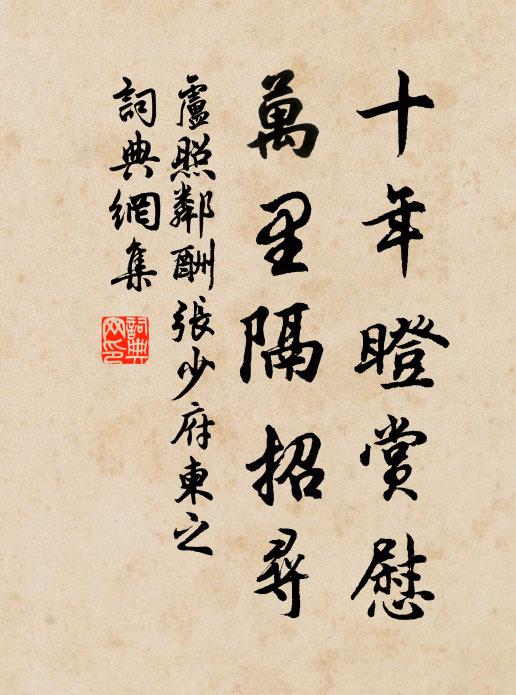 十年瞪賞慰
萬里隔招尋
盧照鄰酬張少府東之
詞典網集
詞典
网印